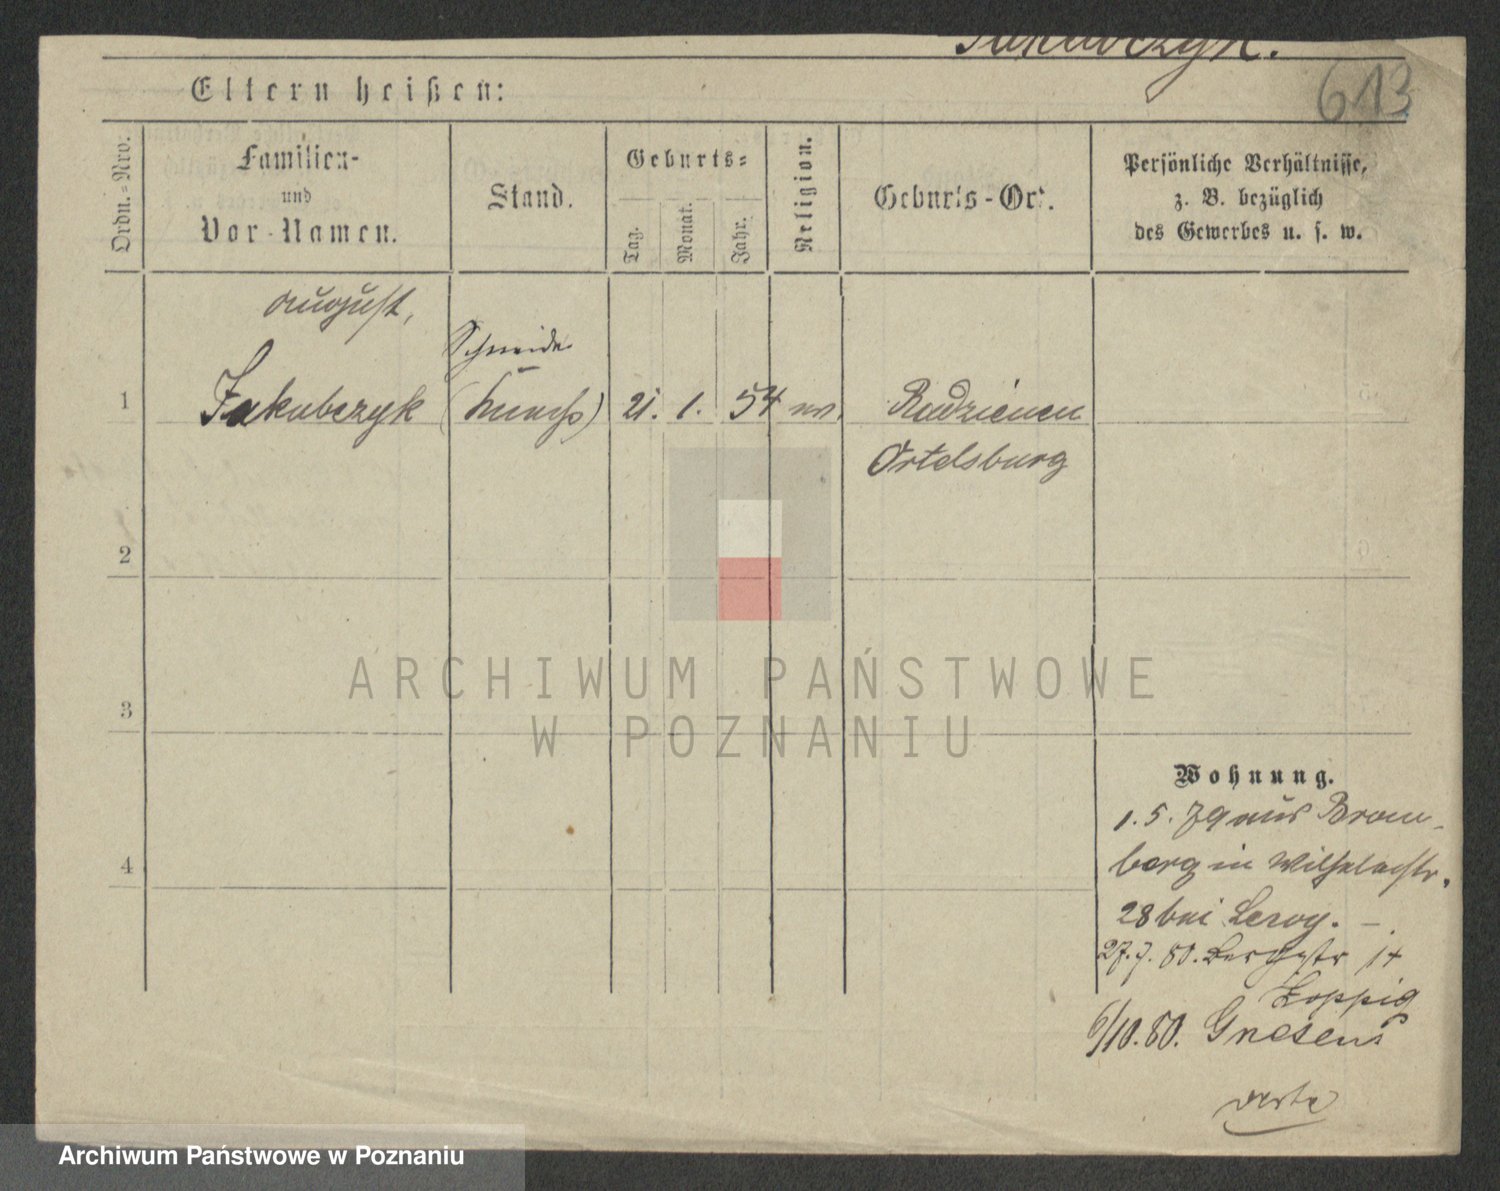 Jakubczyk.
613
Eltern heißen:
Ordn.=Nro.
Familien-
und
Vor-Namen.
Stand.
Geburts=
Tag.
Monat.
Jahr.
Religion.
Geburts-Ort.
Persönliche Verhältnisse,
z. B. bezüglich
des Gewerbes u. s. w.
August,
Schneider
1 Jakubczyk 21. 1. 54 ev. Radzienen
Ortelsburg
2
3
4
ARCHIWUM PAŃSTWOWE
W POZNANIU
Wohnung.
1. 5. 79 aus Brom-
berg in Wilhelmstr.
28 bei Leroy. —
27. 7. 80. Bergstr 14
6/10. 80. Gnesen
verte
Archiwum Państwowe w Poznaniu